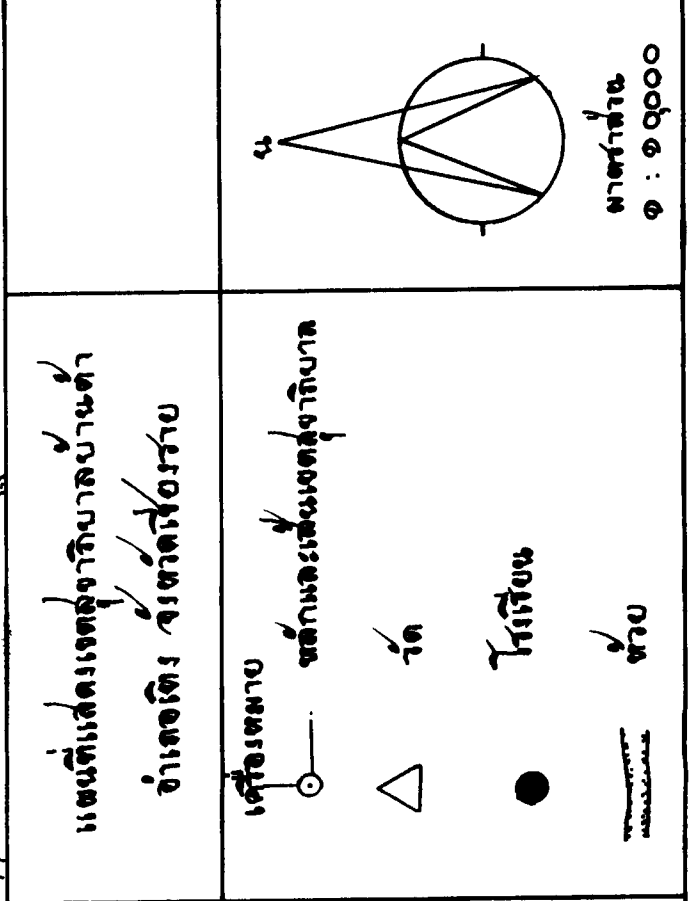 แผนที่แสดงเขตสุขาภิบาลบ้านต้า
อำเภอเทิง จังหวัดเชียงราย
เครื่องหมาย
หลักและเส้นเขตสุขาภิบาล
วัด
โรงเรียน
ห้วย
น
มาตราส่วน
๑ : ๑๐,๐๐๐